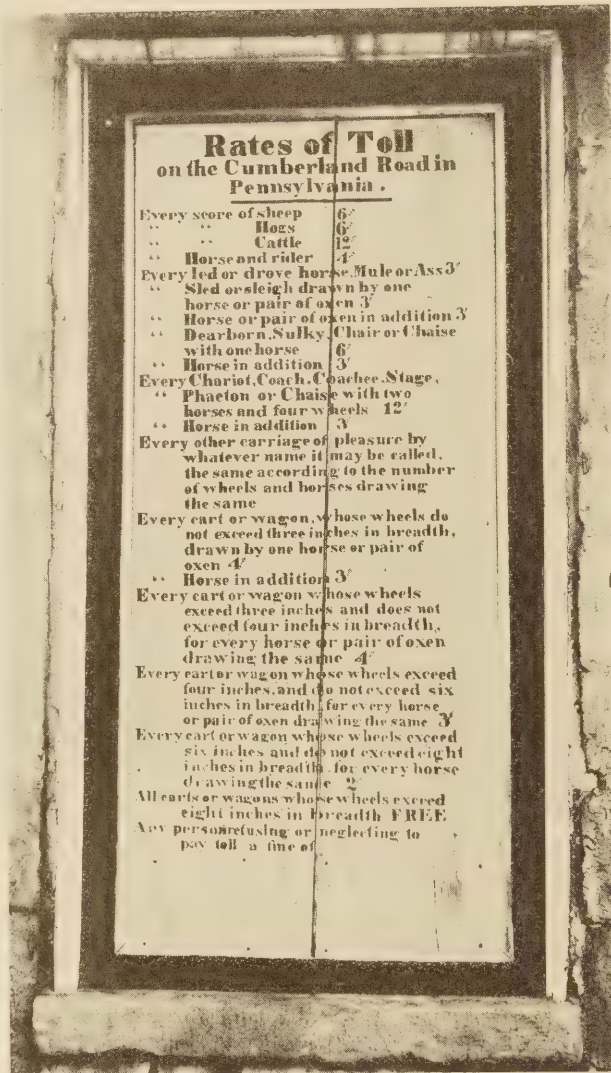 Rates of Toll
on the Cumberland Road in
Pennsylvania.
Every score of sheep 6/
“ “ Hogs 6/
“ “ Cattle 12/
“ Horse and rider 4/
Every led or drove horse, Mule or Ass 3/
“ Sled or sleigh drawn by one
horse or pair of oxen 3/
“ Horse or pair of oxen in addition 3/
“ Dearborn, Sulky, Chair or Chaise
with one horse 6/
“ Horse in addition 3/
Every Chariot, Coach, Coachee, Stage,
“ Phaeton or Chaise with two
horses and four wheels 12/
“ Horse in addition 3/
Every other carriage of pleasure by
whatever name it may be called,
the same according to the number
of wheels and horses drawing
the same
Every cart or wagon, whose wheels do
not exceed three inches in breadth,
drawn by one horse or pair of
oxen 4/
“ Horse in addition 3/
Every cart or wagon whose wheels
exceed three inches and does not
exceed four inches in breadth,
for every horse or pair of oxen
drawing the same 4/
Every cart or wagon whose wheels exceed
four inches, and do not exceed six
inches in breadth, for every horse
or pair of oxen drawing the same 3/
Every cart or wagon whose wheels exceed
six inches and do not exceed eight
inches in breadth, for every horse
drawing the same 2/
All carts or wagons whose wheels exceed
eight inches in breadth FREE
Any person refusing or neglecting to
pay toll a fine of